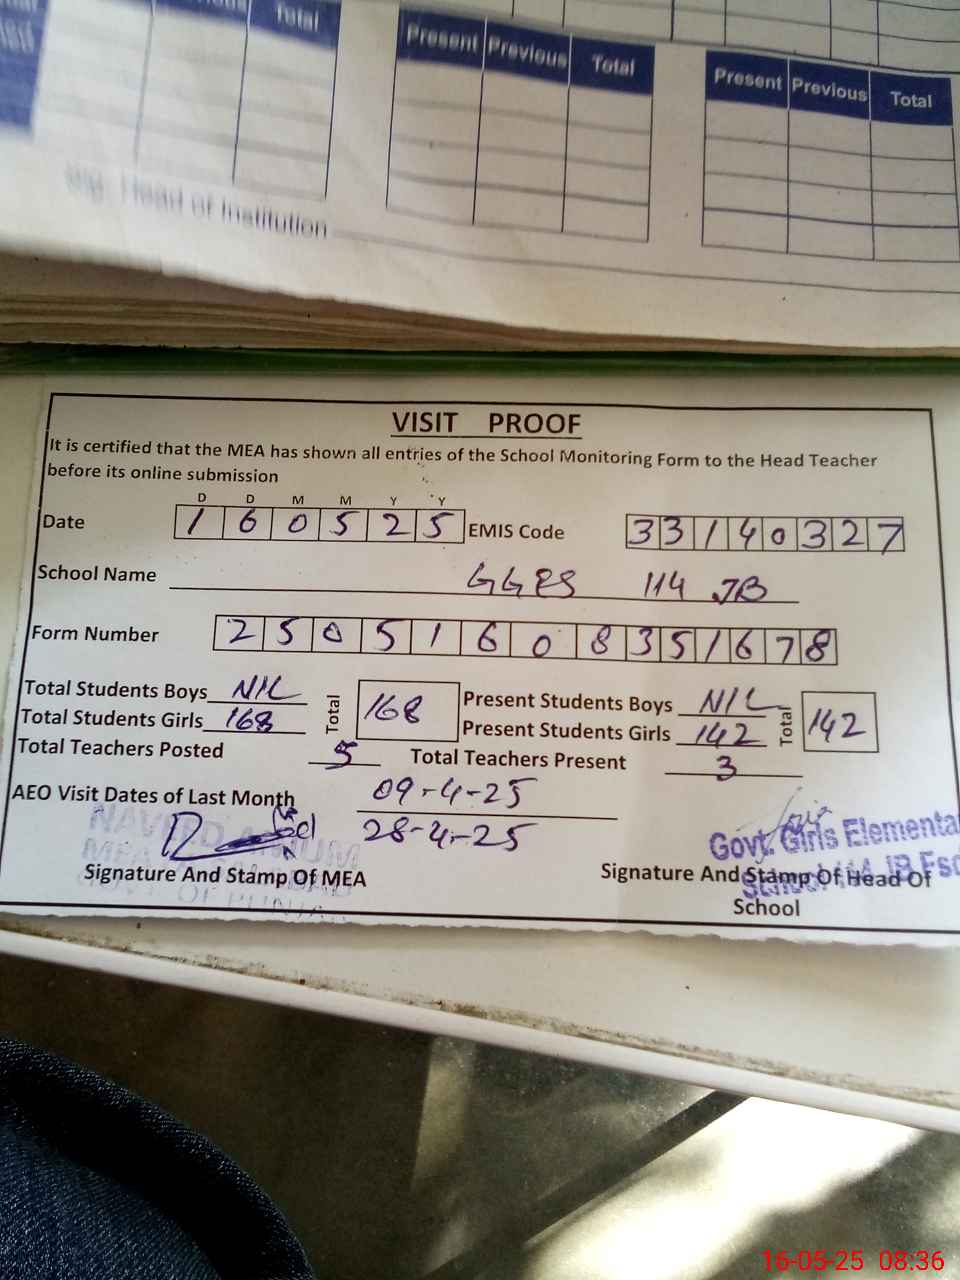 Total
Present Previous Total
Present Previous Total
Sig. Head of Institution
VISIT PROOF
It is certified that the MEA has shown all entries of the School Monitoring Form to the Head Teacher
before its online submission
D D M M Y Y
Date 1 6 0 5 2 5 EMIS Code 3 3 1 4 0 3 2 7
School Name GGES 114 JB
Form Number 2 5 0 5 1 6 0 8 3 5 1 6 7 8
Total Students Boys NIL Total 168 Present Students Boys NIL Total 142
Total Students Girls 168 Present Students Girls 142
Total Teachers Posted 5 Total Teachers Present 3
AEO Visit Dates of Last Month 09-4-25
28-4-25
Govt. Girls Elementa
School 114 JB Fsd
Signature And Stamp Of MEA Signature And Stamp Of Head Of
School
16-05-25 08:36